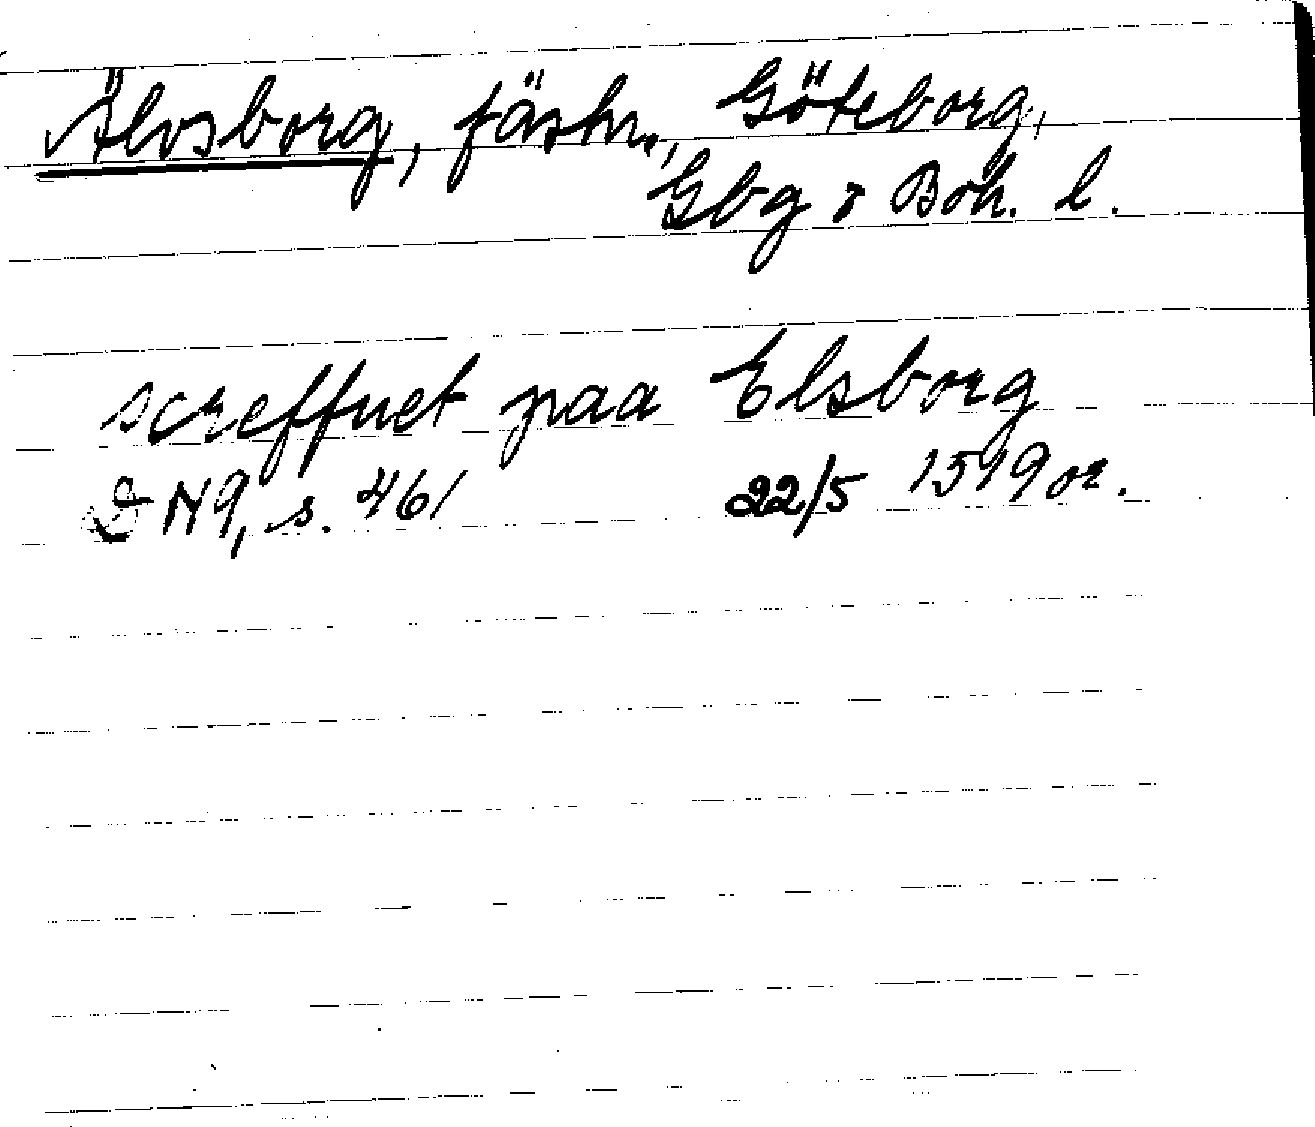 Älvsborg, fästn., Göteborg,
Gbg o Boh. l.
screffuet paa Elsborg
DN 9, s. 461 22/5 1519 or.